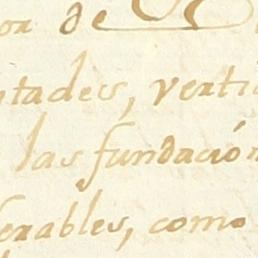 or de
ntades, verti
las fundación
erables, como